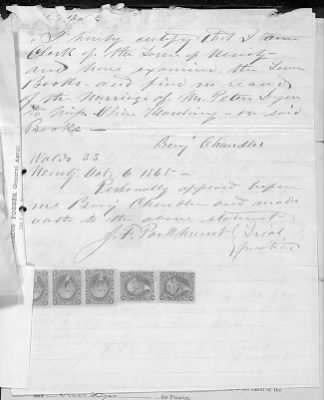 I hereby certify that I am
Clerk of the Town of Unity
and have examined the Town
Books and find no record
of the Marriage of Mr. Peter Dyer
to Miss Olive on said
Books —
Benj Chandler
Waldo SS.
Unity Oct. 6 1865 —
Personally appeared before
me Benj Chandler and made
oath to the above statement
J. F. Parkhurst } Trial
Justice
for Pension.